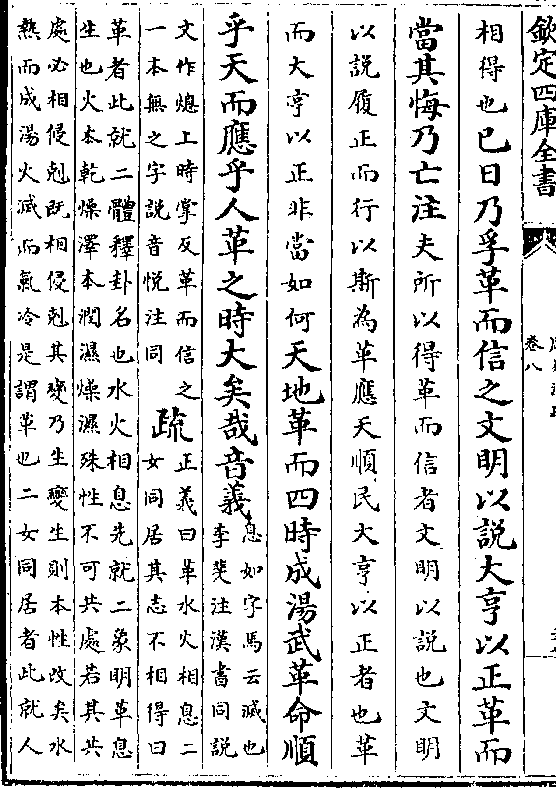 欽定四庫全書
卷八
相得也已日乃孚革而信之文明以説大亨以正革而
當其悔乃亡注夫所以得革而信者文明以説也文明
以説履正而行以斯為革應天順民大亨以正者也革
而大亨以正非當如何天地革而四時成湯武革命順
乎天而應乎人革之時大矣哉音義
息如字馬云滅也
李斐注漢書同説
文作熄上時掌反革而信之
一本無之字説音悦注同
疏
正義曰革水火相息二
女同居其志不相得曰
革者此就二體釋卦名也水火相息先就二象明革息
生也火本乾燥澤本潤濕燥濕殊性不可共處若其共
處必相侵剋既相侵剋其變乃生變生則本性改矣水
熱而成湯火滅而氣冷是謂革也二女同居者此就人